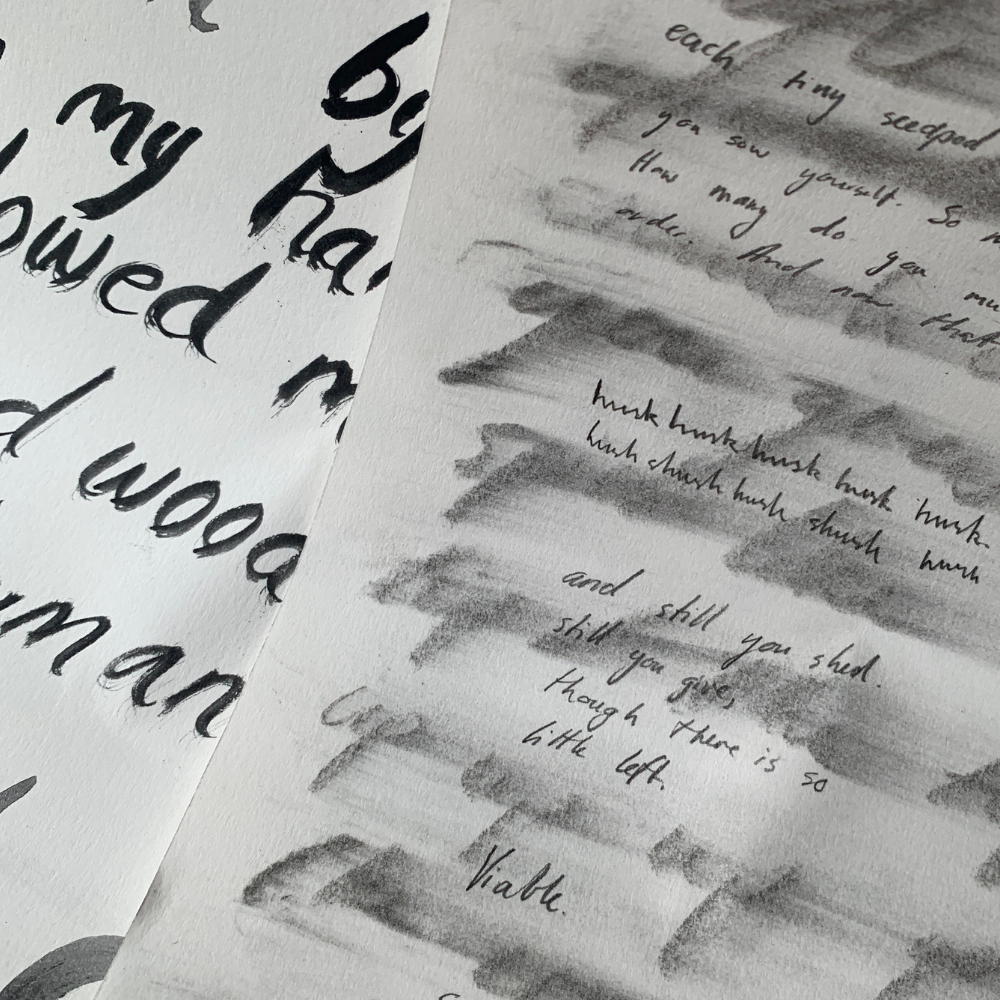 by
my
ha
owed
d
man
each tiny seedpod
you sow yourself. So
How many do you mu
order. And now that
husk husk husk husk husk.
hush shush hush shush hush
and still you shed.
still you give,
though there is so
little left.
Viable.